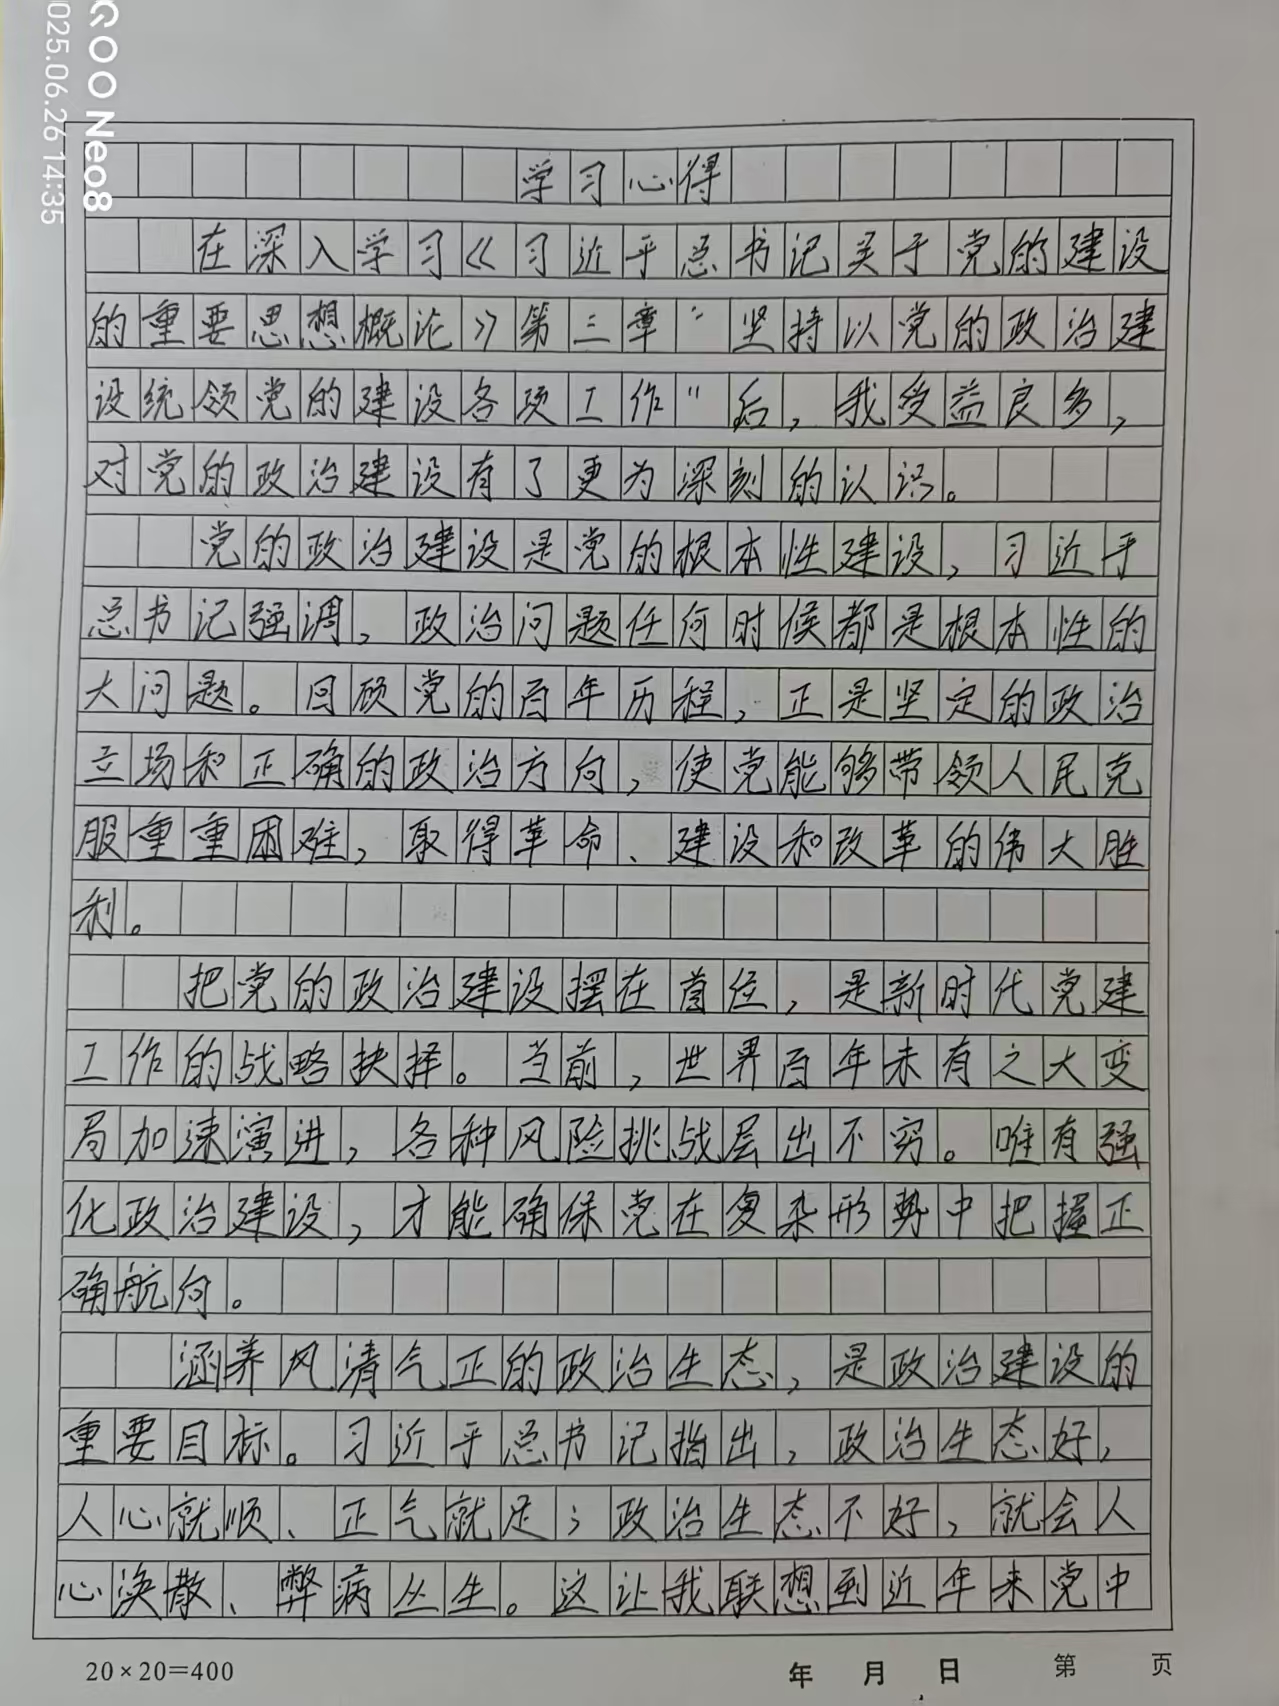 QOO Neo8
025.06.26 14:35
学习心得
在深入学习《习近平总书记关于党的建设
的重要思想概论》第三章“坚持以党的政治建
设统领党的建设各项工作”后，我受益良多，
对党的政治建设有了更为深刻的认识。
党的政治建设是党的根本性建设，习近平
总书记强调，政治问题任何时候都是根本性的
大问题。回顾党的百年历程，正是坚定的政治
立场和正确的政治方向，使党能够带领人民克
服重重困难，取得革命、建设和改革的伟大胜
利。
把党的政治建设摆在首位，是新时代党建
工作的战略抉择。当前，世界百年未有之大变
局加速演进，各种风险挑战层出不穷。唯有强
化政治建设，才能确保党在复杂形势中把握正
确航向。
涵养风清气正的政治生态，是政治建设的
重要目标。习近平总书记指出，政治生态好，
人心就顺、正气就足；政治生态不好，就会人
心涣散、弊病丛生。这让我联想到近年来党中
20×20=400
年 月 日 第 页